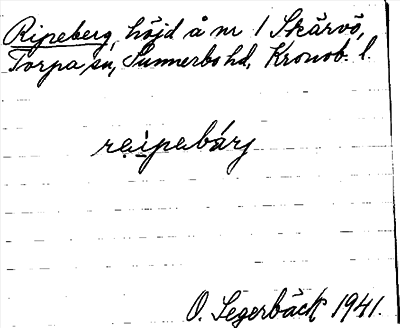 Ripeberg, höjd å nr 1 Skärvö,
Torpa sn, Sunnerbo hd, Kronob. l.
raipabárj
O. Segerbäck 1941.